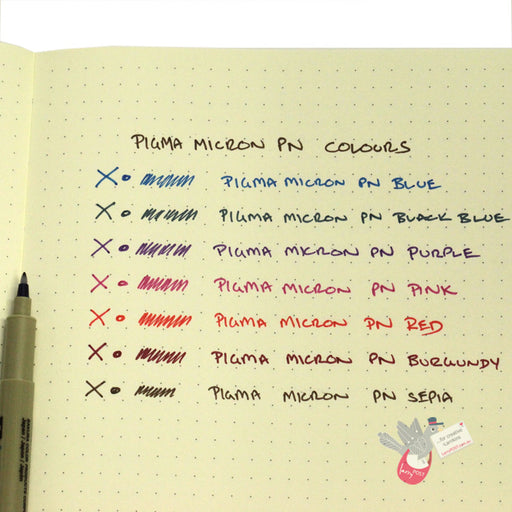 PIGMA MICRON PN COLOURS
X o PIGMA MICRON PN BLUE
X o PIGMA MICRON PN BLACK BLUE
X o PIGMA MICRON PN PURPLE
X o PIGMA MICRON PN PINK
X o PIGMA MICRON PN RED
X o PIGMA MICRON PN BURGUNDY
X o PIGMA MICRON PN SEPIA
...for creative
larrykins
larry POST